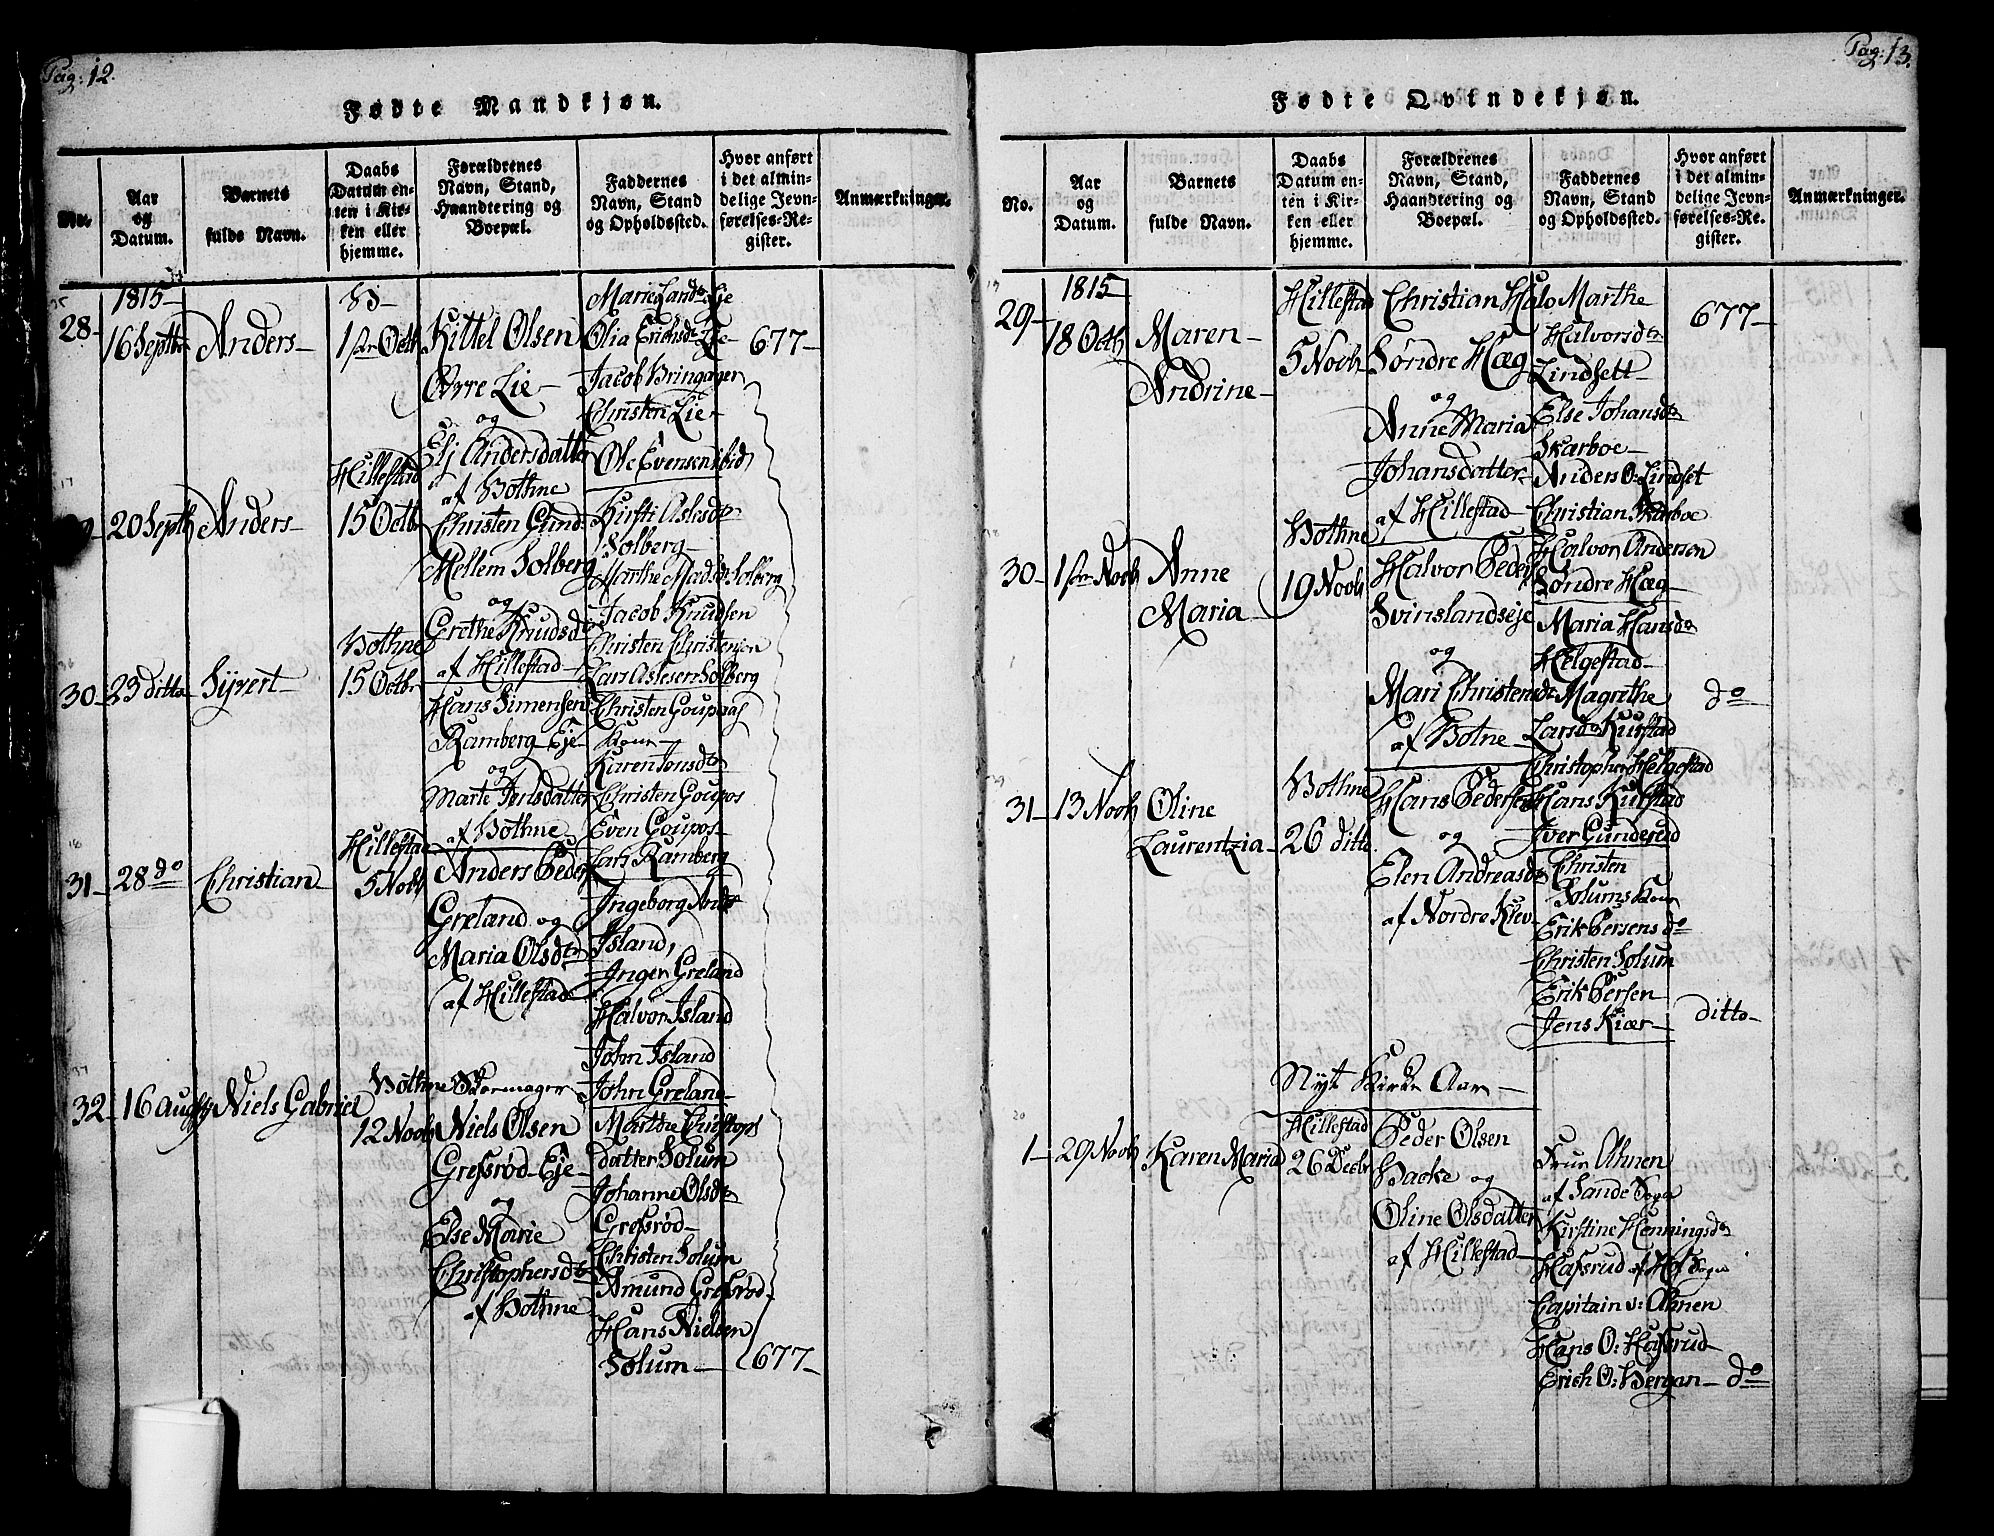 Pag: 12.
Fødte Mandkjøn.
No.
Aar og Datum.
Barnets fulde Navn.
Daabs Datum enten i Kirken eller hjemme.
Forældrenes Navn, Stand, Haandtering og Boepæl.
Faddernes Navn, Stand og Opholdssted.
Hvor anført i det almindelige Jevnførelses-Register.
Anmærkninger.
1815
28
16 Septbr
Anders
B
1ste Octb
Kittel Olsen
Orre Lie
og
Elj Andersdatter
af Bothne
Marie Landse Eje
Olia Ericsdr Lie
Jacob Bringager
Christen Lie
Ole Evensen ibid
677
20 Septb
Anders
Hillestad
15 Octb
Christen Gund:
Mellem Solberg
og
Grethe Knudsdr
af Hillestad
Kirsti Aslesdr
Solberg
Marthe Madsdr Solberg
Jacob Knudsen
Christen Christensen
Lars Aslesen Solberg
30
23 ditto
Syvert
Bothne
15 Octbr
Hans Simensen
Ramberg Eje
og
Marte Jensdatter
af Bothne
Christen Goupaas
Kone
Karen Jonsdr
Christen Goupos
Even Goupos
Lars Ramberg
31
28 do
Christian
Hillestad
5 Novb
Anders Peders
Greland og
Maria Olsdr
af Hillestad
Ingeborg Andr
Island,
Inger Greland
Halvor Island
John Island
John Greland
32
16 Augst
Niels Gabriel
Bothne
12 Novb
Skomager
Niels Olsen
Grefsrød Eje
og
Else Marie
Christophersdr
af Bothne
Marthe Christops
datter Solum
Johanne Olsdr
Grefsrød
Christen Solum
Amund Grefsrød
Hans Nielsen
Solum
677
Pag: 13.
Fødte Qvindekjøn.
No.
Aar og Datum.
Barnets fulde Navn.
Daabs Datum enten i Kirken eller hjemme.
Forældrenes Navn, Stand, Haandtering og Boepæl.
Faddernes Navn, Stand og Opholdssted.
Hvor anført i det almindelige Jevnførelses-Register.
Anmærkninger.
1815
29
18 Octb
Maren
Andrine
Hillestad
5 Novb
Christian Halv
Søndre Hæg
og
Anne Maria
Johansdatter
af Hillestad
Marthe
Halvorsdr
Lindsett
Else Johansdr
Skarboe
Anders O: Lindset
Christian Skarboe
Halvor Andersen
Søndre Hæg
677
30
1ste Novb
Anne
Maria
Bothne
19 Novb
Halvor Peders
Svinslandseje
og
Mari Christensdr
af Botne
Maria Hansdr
Helgestad
Magrethe
Larsdr Kurstad
Christopher Helgestad
Hans Kurstad
Iver Gunderud
do
31
13 Novb
Oline
Laurentzia
Bothne
26 ditto
Hans Pedersen
og
Elen Andreasdr
af Nordre Klev
Christen
Solums Kone
Erik Persens do
Christen Solum
Erik Persen
Jens Kiær
ditto
Nyt Kirke Aar
1
29 Novb
Karen Maria
Hillestad
26 Decbr
Peder Olsen
Backe og
Oline Olsdatter
af Hillestad
Frue Ahnen
af Sande Sogn
Kirstine Henningsdr
Hafsrud af Hof Sogn
Capitain v: Ahnen
Hans O: Hafsrud
Erich O: Bergan
do